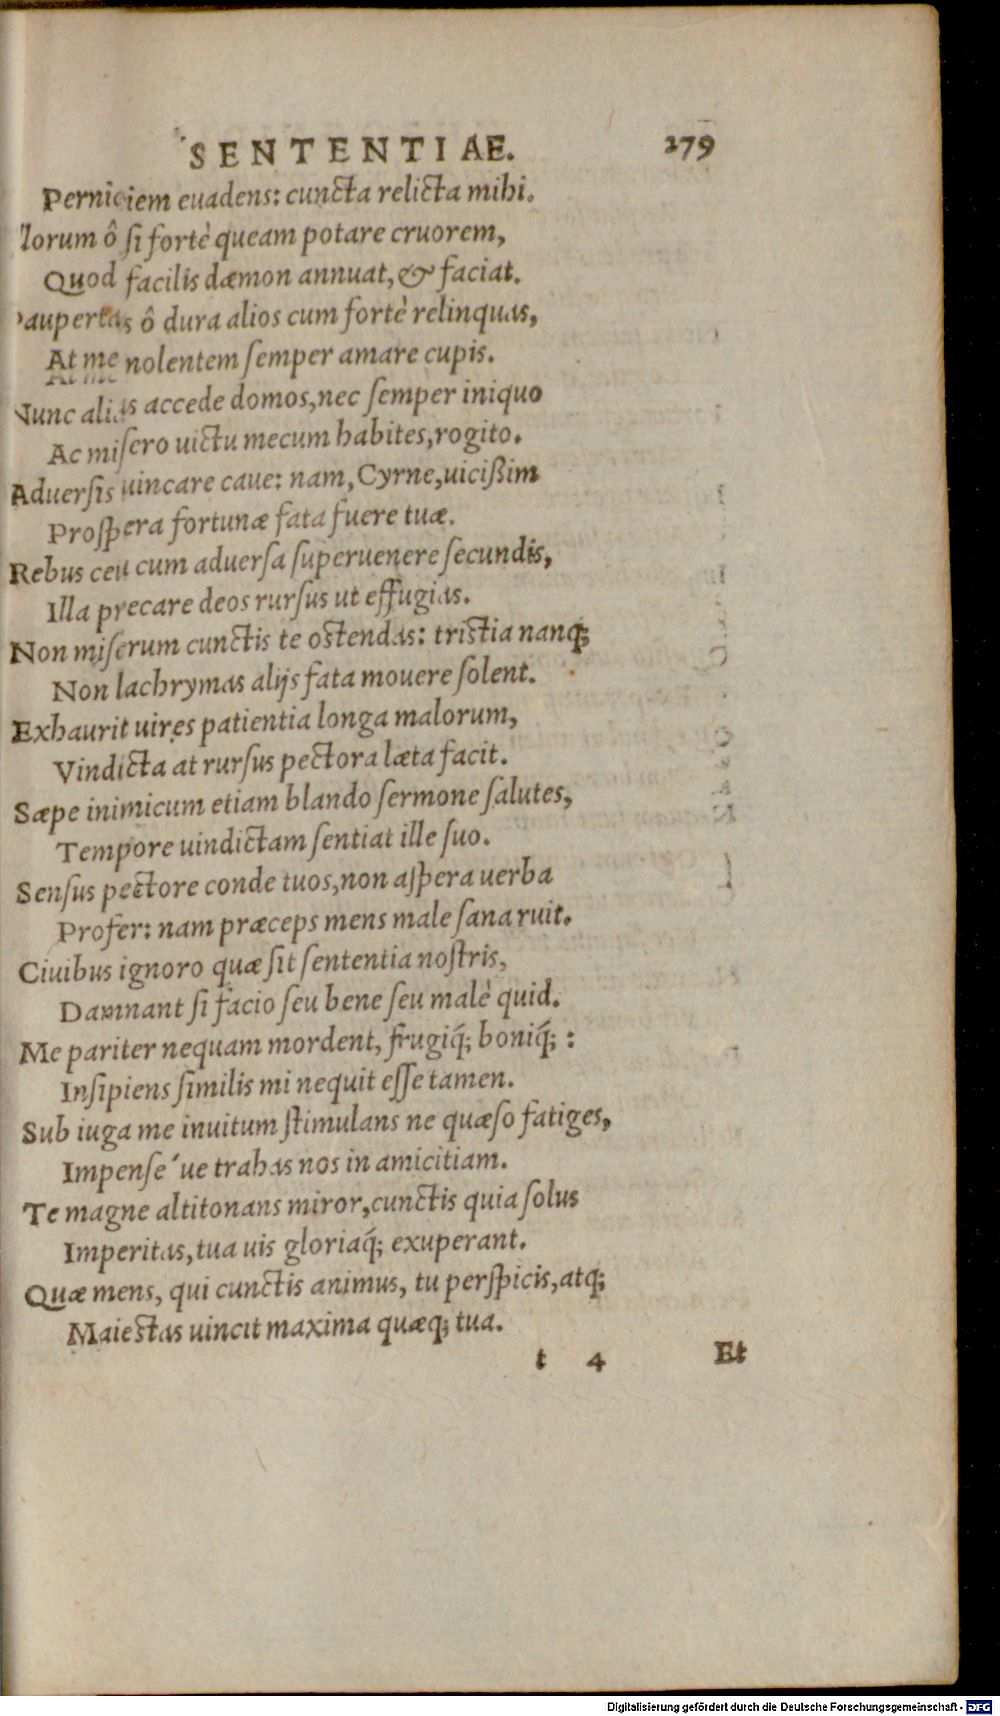 SENTENTIAE. 279
Perniciem euadens: cuncta relicta mihi.
lorum ô si fortè queam potare cruorem,
Quod facilis dæmon annuat, & faciat.
aupertas ô dura alios cum fortè relinquas,
At me nolentem semper amare cupis.
Nunc alias accede domos, nec semper iniquo
Ac misero uictu mecum habites, rogito.
Aduersis uincare caue: nam, Cyrne, uicißim
Prospera fortunæ fata fuere tuæ.
Rebus ceu cum aduersa superuenere secundis,
Illa precare deos rursus ut effugias.
Non miserum cunctis te ostendas: tristia nanq;
Non lachrymas alijs fata mouere solent.
Exhaurit uires patientia longa malorum,
Vindicta at rursus pectora læta facit.
Sæpe inimicum etiam blando sermone salutes,
Tempore uindictam sentiat ille suo.
Sensus pectore conde tuos, non aspera uerba
Profer: nam præceps mens male sana ruit.
Ciuibus ignoro quæ sit sententia nostris,
Damnant si facio seu bene seu malè quid.
Me pariter nequam mordent, frugiq́; boniq́; :
Insipiens similis mi nequit esse tamen.
Sub iuga me inuitum stimulans ne quæso fatiges,
Impense ´ue trahas nos in amicitiam.
Te magne altitonans miror, cunctis quia solus
Imperitas, tua uis gloriaq́; exuperant.
Quæ mens, qui cunctis animus, tu perspicis, atq;
Maiestas uincit maxima quæq; tua.
t 4 Et
Digitalisierung gefördert durch die Deutsche Forschungsgemeinschaft - DFG